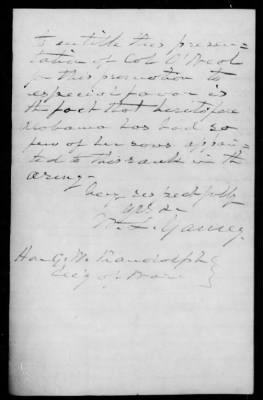 to entitle this presen=
tation of Col O'Neal
for this promotion to
especial favor is
the fact that heretofore
Alabama has had so
few of her sons appoin=
ted to this rank in the
army -
Very respectfully
yrs &c
W. L. Yancey
Hon G. W. Randolph
Sec'y of War